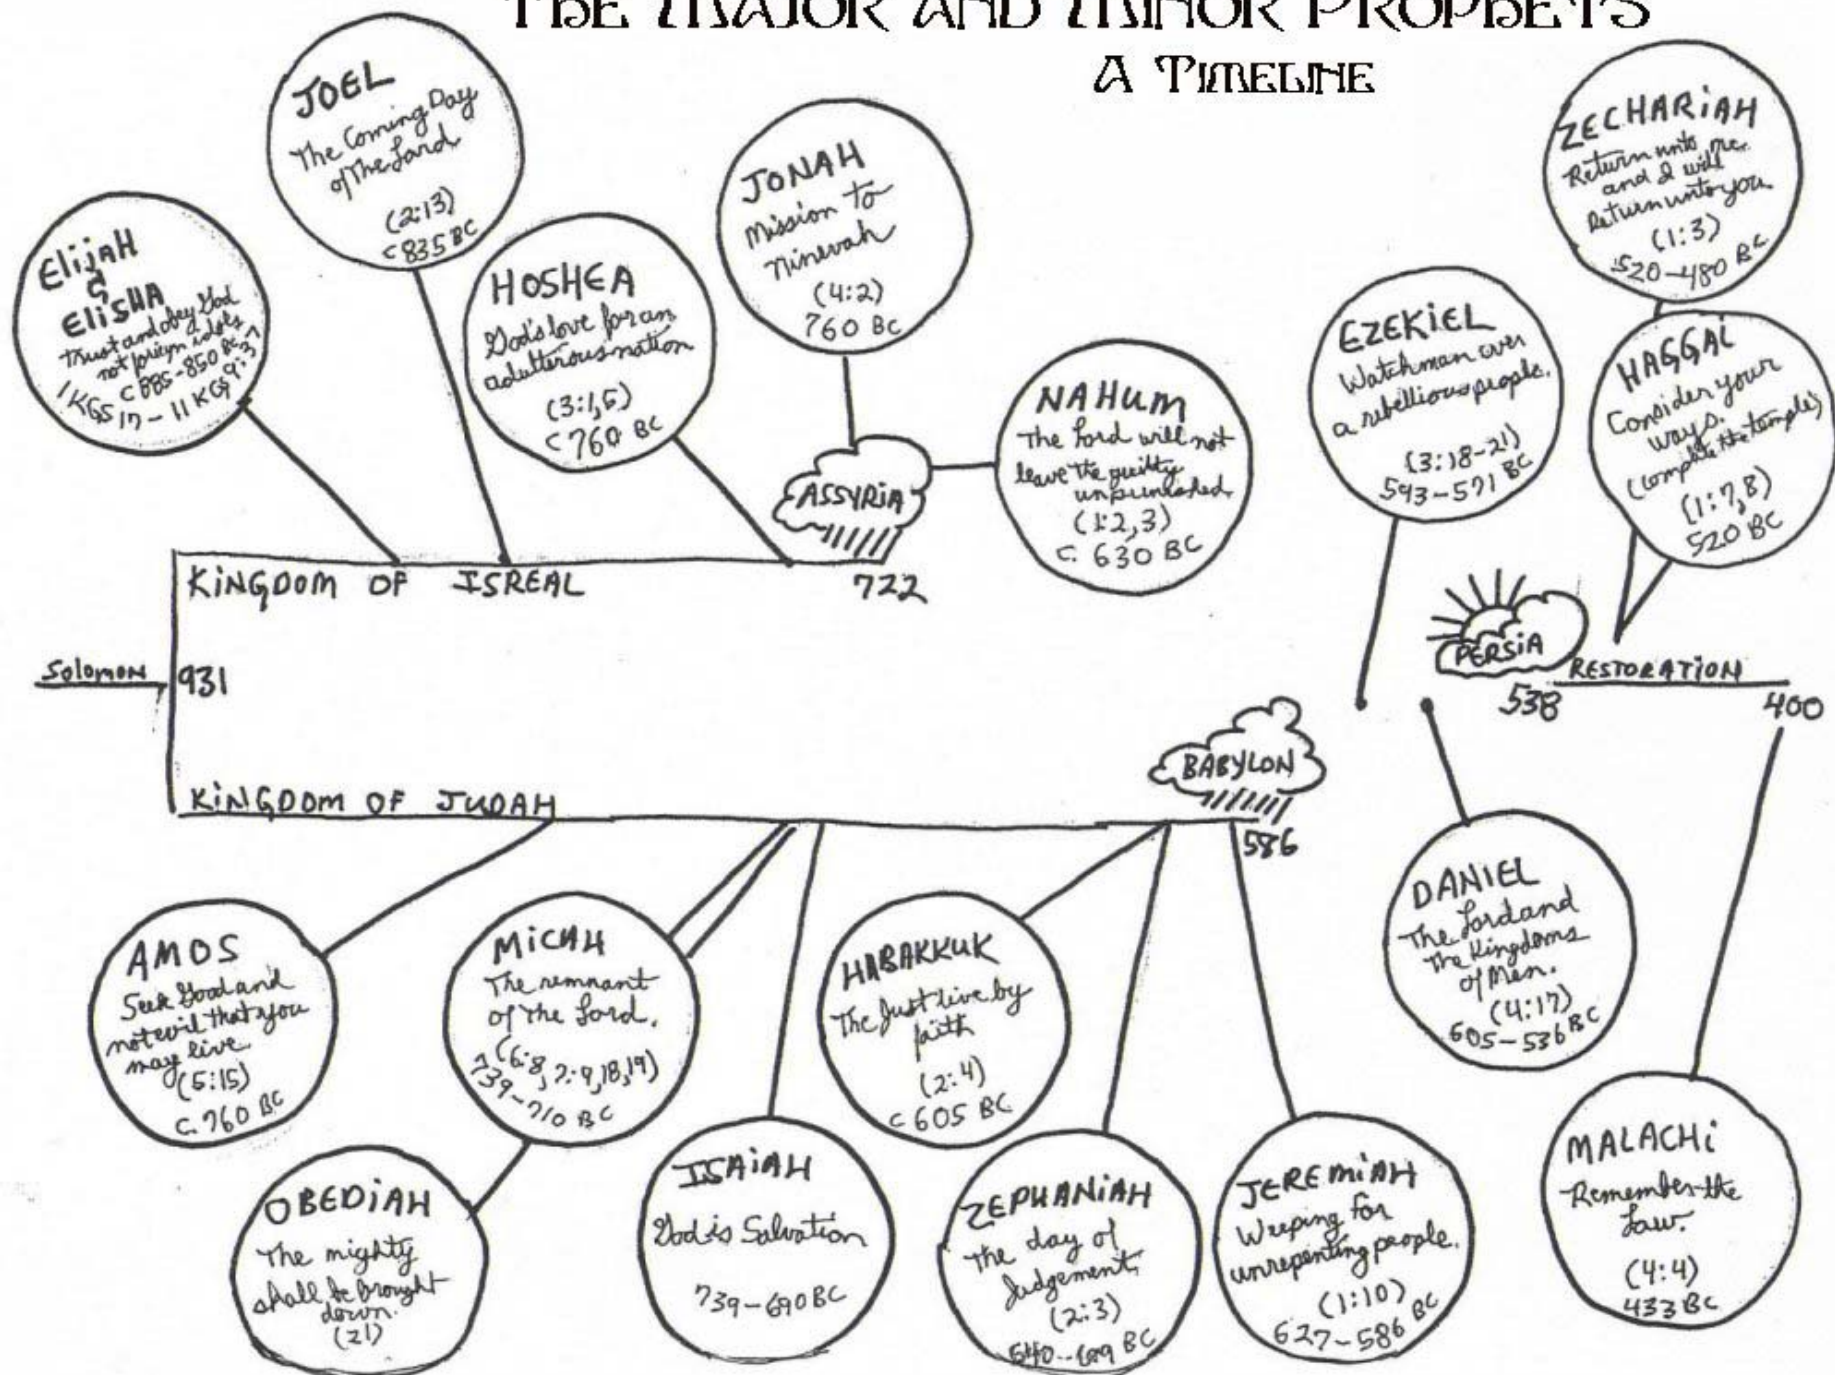 THE MAJOR AND MINOR PROPHETS
A TIMELINE
JOEL
The Coming Day
of The Lord
(2:13)
c 835 BC
ELijAH
&
ELiSHA
Trust and obey God
not foreign idols
c 885-850 BC
1 KGS 17 - 11 KGS 9:37
HOSHEA
God's love for an
adulterous nation
(3:1,5)
c 760 BC
JONAH
Mission to
Ninevah
(4:2)
760 BC
NAHUM
The Lord will not
leave the guilty
unpunished.
(1:2,3)
c. 630 BC
ASSYRiA
EZEKiEL
Watchman over
a rebellious people.
(3:18-21)
593-571 BC
ZECHARiAH
Return unto me
and I will
Return unto you
(1:3)
520-480 BC
HAGGAi
Consider your
ways.
(complete the temple)
(1:7,8)
520 BC
KiNGDOM OF ISREAL
722
Solomon
931
PERSiA
RESTORATiON
538
400
KiNGDOM OF JUDAH
BABYLON
586
AMOS
Seek Good and
not evil that you
may live.
(5:15)
c. 760 BC
MiCAH
The remnant
of The Lord.
(6:8, 7:9,18,19)
739-710 BC
OBEDiAH
The mighty
shall be brought
down.
(21)
ISAiAH
God is Salvation
739-690 BC
HABAKKUK
The Just live by
faith
(2:4)
c 605 BC
ZEPHANiAH
The day of
Judgement.
(2:3)
BC
JEREMiAH
Weeping for
unrepenting people.
(1:10)
627-586 BC
DANiEL
The Lord and
The Kingdoms
of Men.
(4:17)
605-536 BC
MALACHi
Remember the
Law.
(4:4)
433 BC